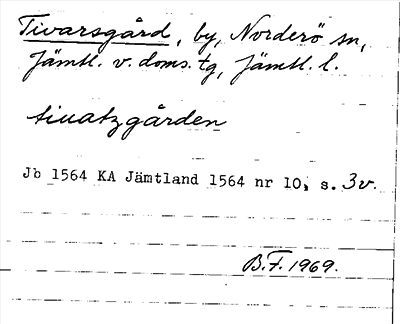 Tivarsgård, by, Norderö sn,
Jämtl. v. doms. tg, Jämtl. l.
tiuatzgården
Jb 1564 KA Jämtland 1564 nr 10, s. 3v.
B.F. 1969.